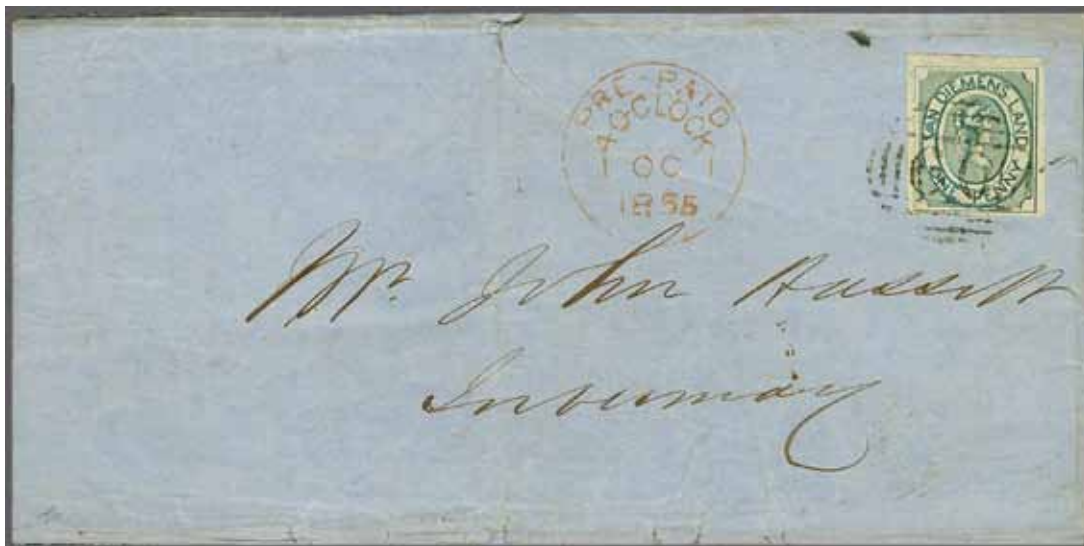 PRE-PAID
4 O'CLOCK
1 OC 1
1855
VAN DIEMENS LAND
ONE PENNY
Mr. John
Invermay